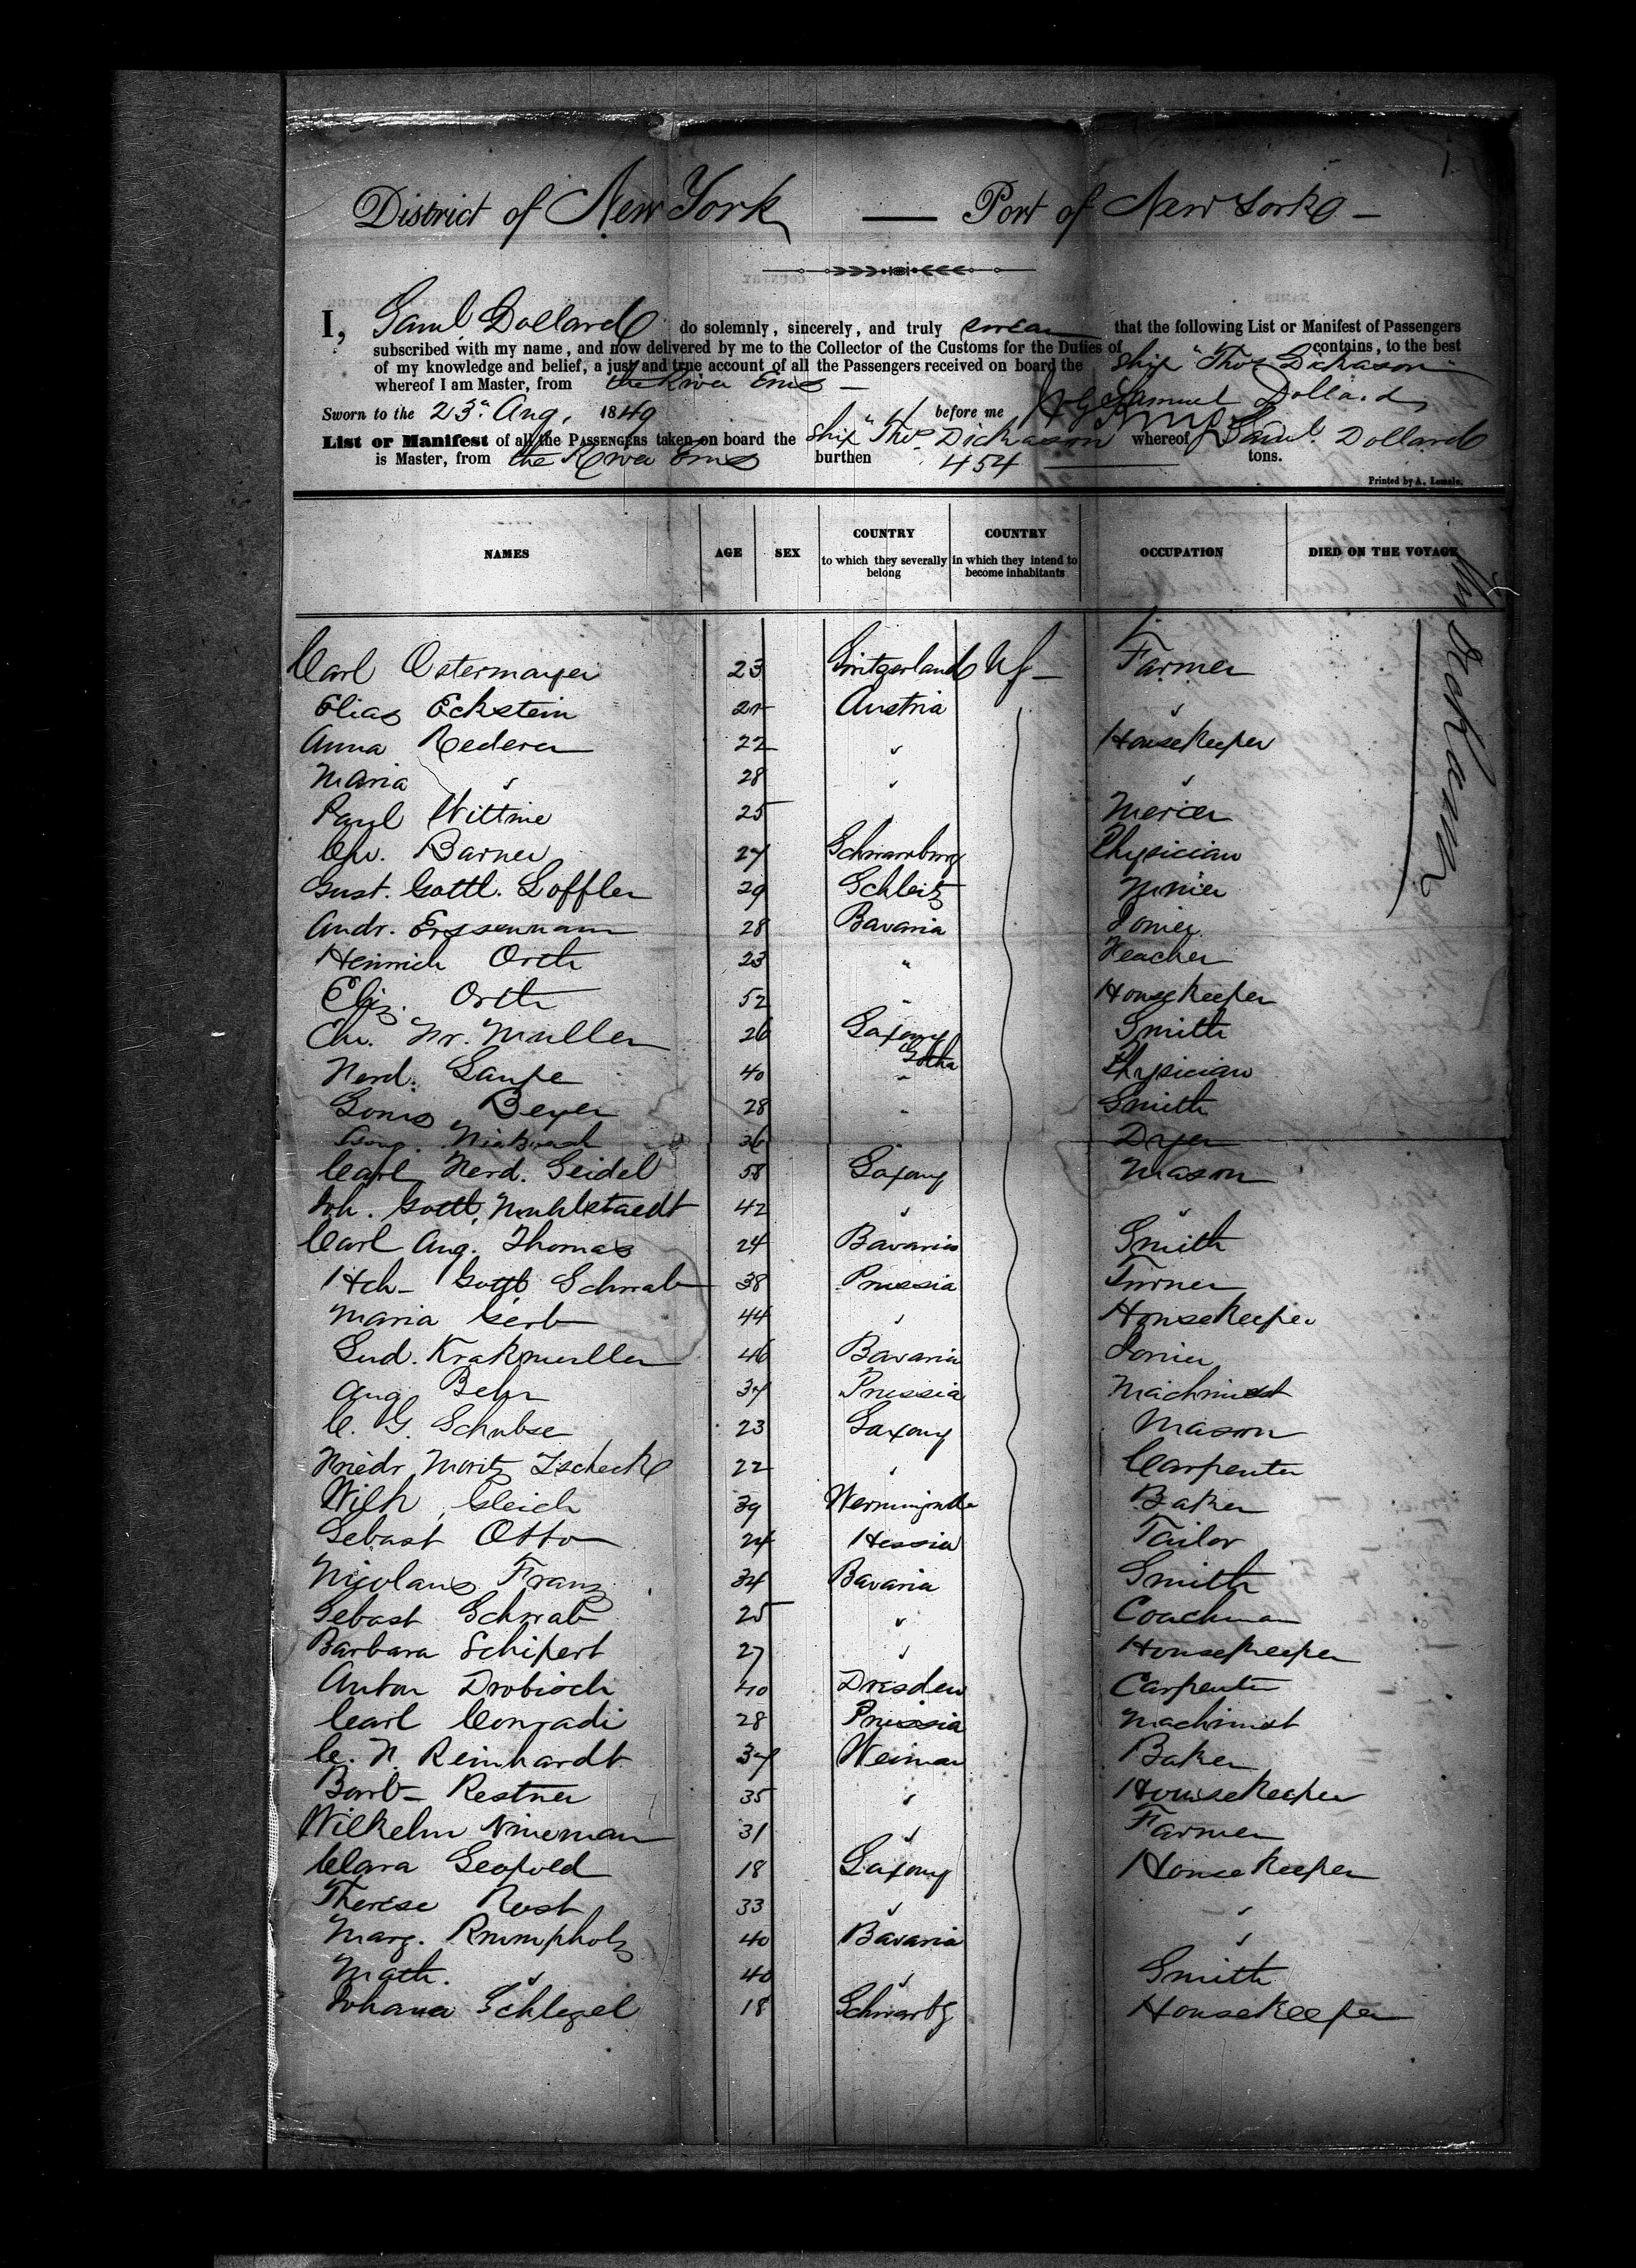 1.
District of New York — Port of New York —
I, Saml Dollard do solemnly, sincerely, and truly swear that the following List or Manifest of Passengers
subscribed with my name, and now delivered by me to the Collector of the Customs for the Duties of contains, to the best
of my knowledge and belief, a just and true account of all the Passengers received on board the Ship "Thos Dickason
whereof I am Master, from the River Ems —
Samuel Dollard
Sworn to the 23d. Aug, 1849 before me
List or Manifest of all the PASSENGERS taken on board the Ship "Thos Dickason whereof Saml. Dollard
is Master, from the River Ems burthen 454 tons.
Printed by A. Lemale.
NAMES AGE SEX COUNTRY to which they severally belong COUNTRY in which they intend to become inhabitants OCCUPATION DIED ON THE VOYAGE
Carl Ostermayer 23 Switzerland US — Farmer
Elias Eckstein 21 Austria "
Anna Rederer 22 " Housekeeper
Maria " 28 " "
Paul Wittme 25 Mercer
Chr. Barner 27 Schwarzburg Physician
Gust. Gottl. Loffler 29 Schleitz
Andr. 28 Bavaria Joiner
Heinrich Orth 23 " Teacher
Eliz. Orth 52 " Housekeeper
Chr. Fr. Muller 26 Saxony Gotha Smith
Ferd. Saupe 40 " Physician
Beyer 28 " Smith
36 Dyer
Carl Ferd. Seidel 58 Saxony Mason
Joh. Gottl. Muhlstaedt 42 " "
Carl Aug. Thomas 24 Bavaria Smith
Hch — Gottl Schwab 38 Prussia Turner
Maria Gerb 44 " Housekeeper
Lud. Krakmuller 46 Bavaria Joiner
Aug Behr 37 Prussia Machinist
C. G. Schubse 23 Saxony Mason
Friedr Moritz Zscheck 22 " Carpenter
Wilh. Gleich 39 Baker
Sebast Otto 24 Hessia Tailor
Nicolaus Franz 34 Bavaria Smith
Sebast Schwab 25 " Coachman
Barbara Schipert 27 " Housekeeper
Anton Drobisch 40 Dresden Carpenter
Carl Conradi 28 Prussia Machinist
C. F. Reinhardt 37 Weimar Baker
Barb — Restner 35 " Housekeeper
Wilhelm Nineman 31 " Farmer
Clara Leopold 18 Saxony Housekeeper
Therese Rost 33 " "
Marg. Rrumpholz 40 Bavaria "
Math. " 40 " Smith
Johanna Schlegel 18 Schwarbg Housekeeper